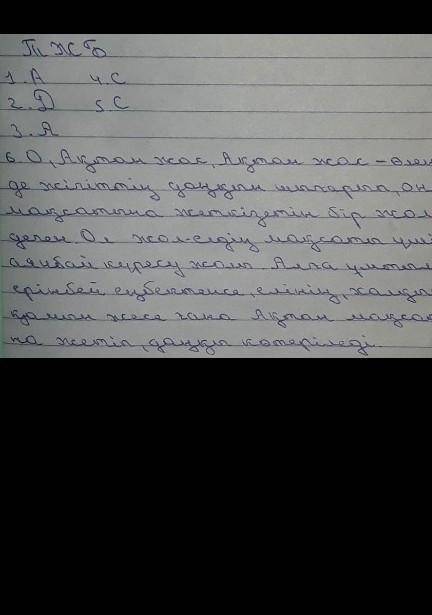 ТЖБ
1. А 4. С
2. Д 5. С
3. А
6. О, Ақтан жас, Ақтан жас – өлең
де жігіттің даңқын шығарып, он
мақсатына жеткізетін бір жол
деген. Ол жол-елдің мақсаты үші
аянбай күресу жолы. Алға ұмтыл
ерінбей еңбектенсе, елінің, халқы
қамын жесе ғана Ақтан мақсат
на жетіп, даңқы көтеріледі.